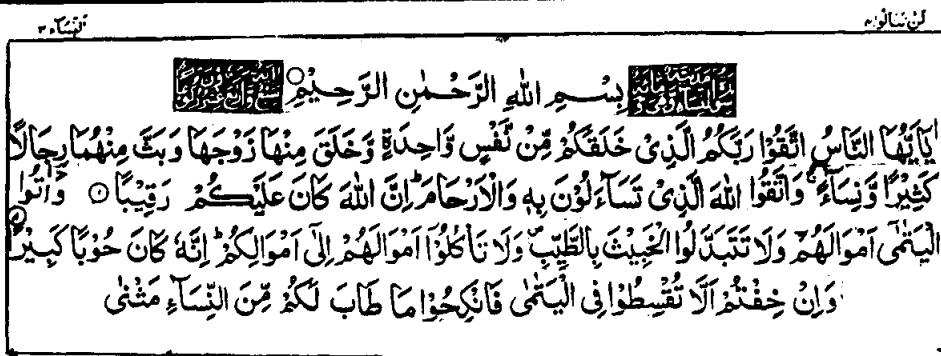 لن تنالوا ٤ النسآء ٤
بِسْمِ اللهِ الرَّحْمٰنِ الرَّحِيْمِ
يٰۤاَيُّهَا النَّاسُ اتَّقُوْا رَبَّكُمُ الَّذِىْ خَلَقَكُمْ مِّنْ نَّفْسٍ وَّاحِدَةٍ وَّخَلَقَ مِنْهَا زَوْجَهَا وَبَثَّ مِنْهُمَا رِجَالًا
كَثِيْرًا وَّنِسَآءً ۚ وَاتَّقُوا اللهَ الَّذِىْ تَسَآءَلُوْنَ بِهٖ وَالْاَرْحَامَ ؕ اِنَّ اللهَ كَانَ عَلَيْكُمْ رَقِيْبًا ۝۱ وَاٰتُوا
الْيَتٰمٰٓى اَمْوَالَهُمْ وَلَا تَتَبَدَّلُوا الْخَبِيْثَ بِالطَّيِّبِ ۪ وَلَا تَاْكُلُوْۤا اَمْوَالَهُمْ اِلٰٓى اَمْوَالِكُمْ ؕ اِنَّهٗ كَانَ حُوْبًا كَبِيْرًا ۝۲
وَاِنْ خِفْتُمْ اَلَّا تُقْسِطُوْا فِى الْيَتٰمٰى فَانْكِحُوْا مَا طَابَ لَكُمْ مِّنَ النِّسَآءِ مَثْنٰى